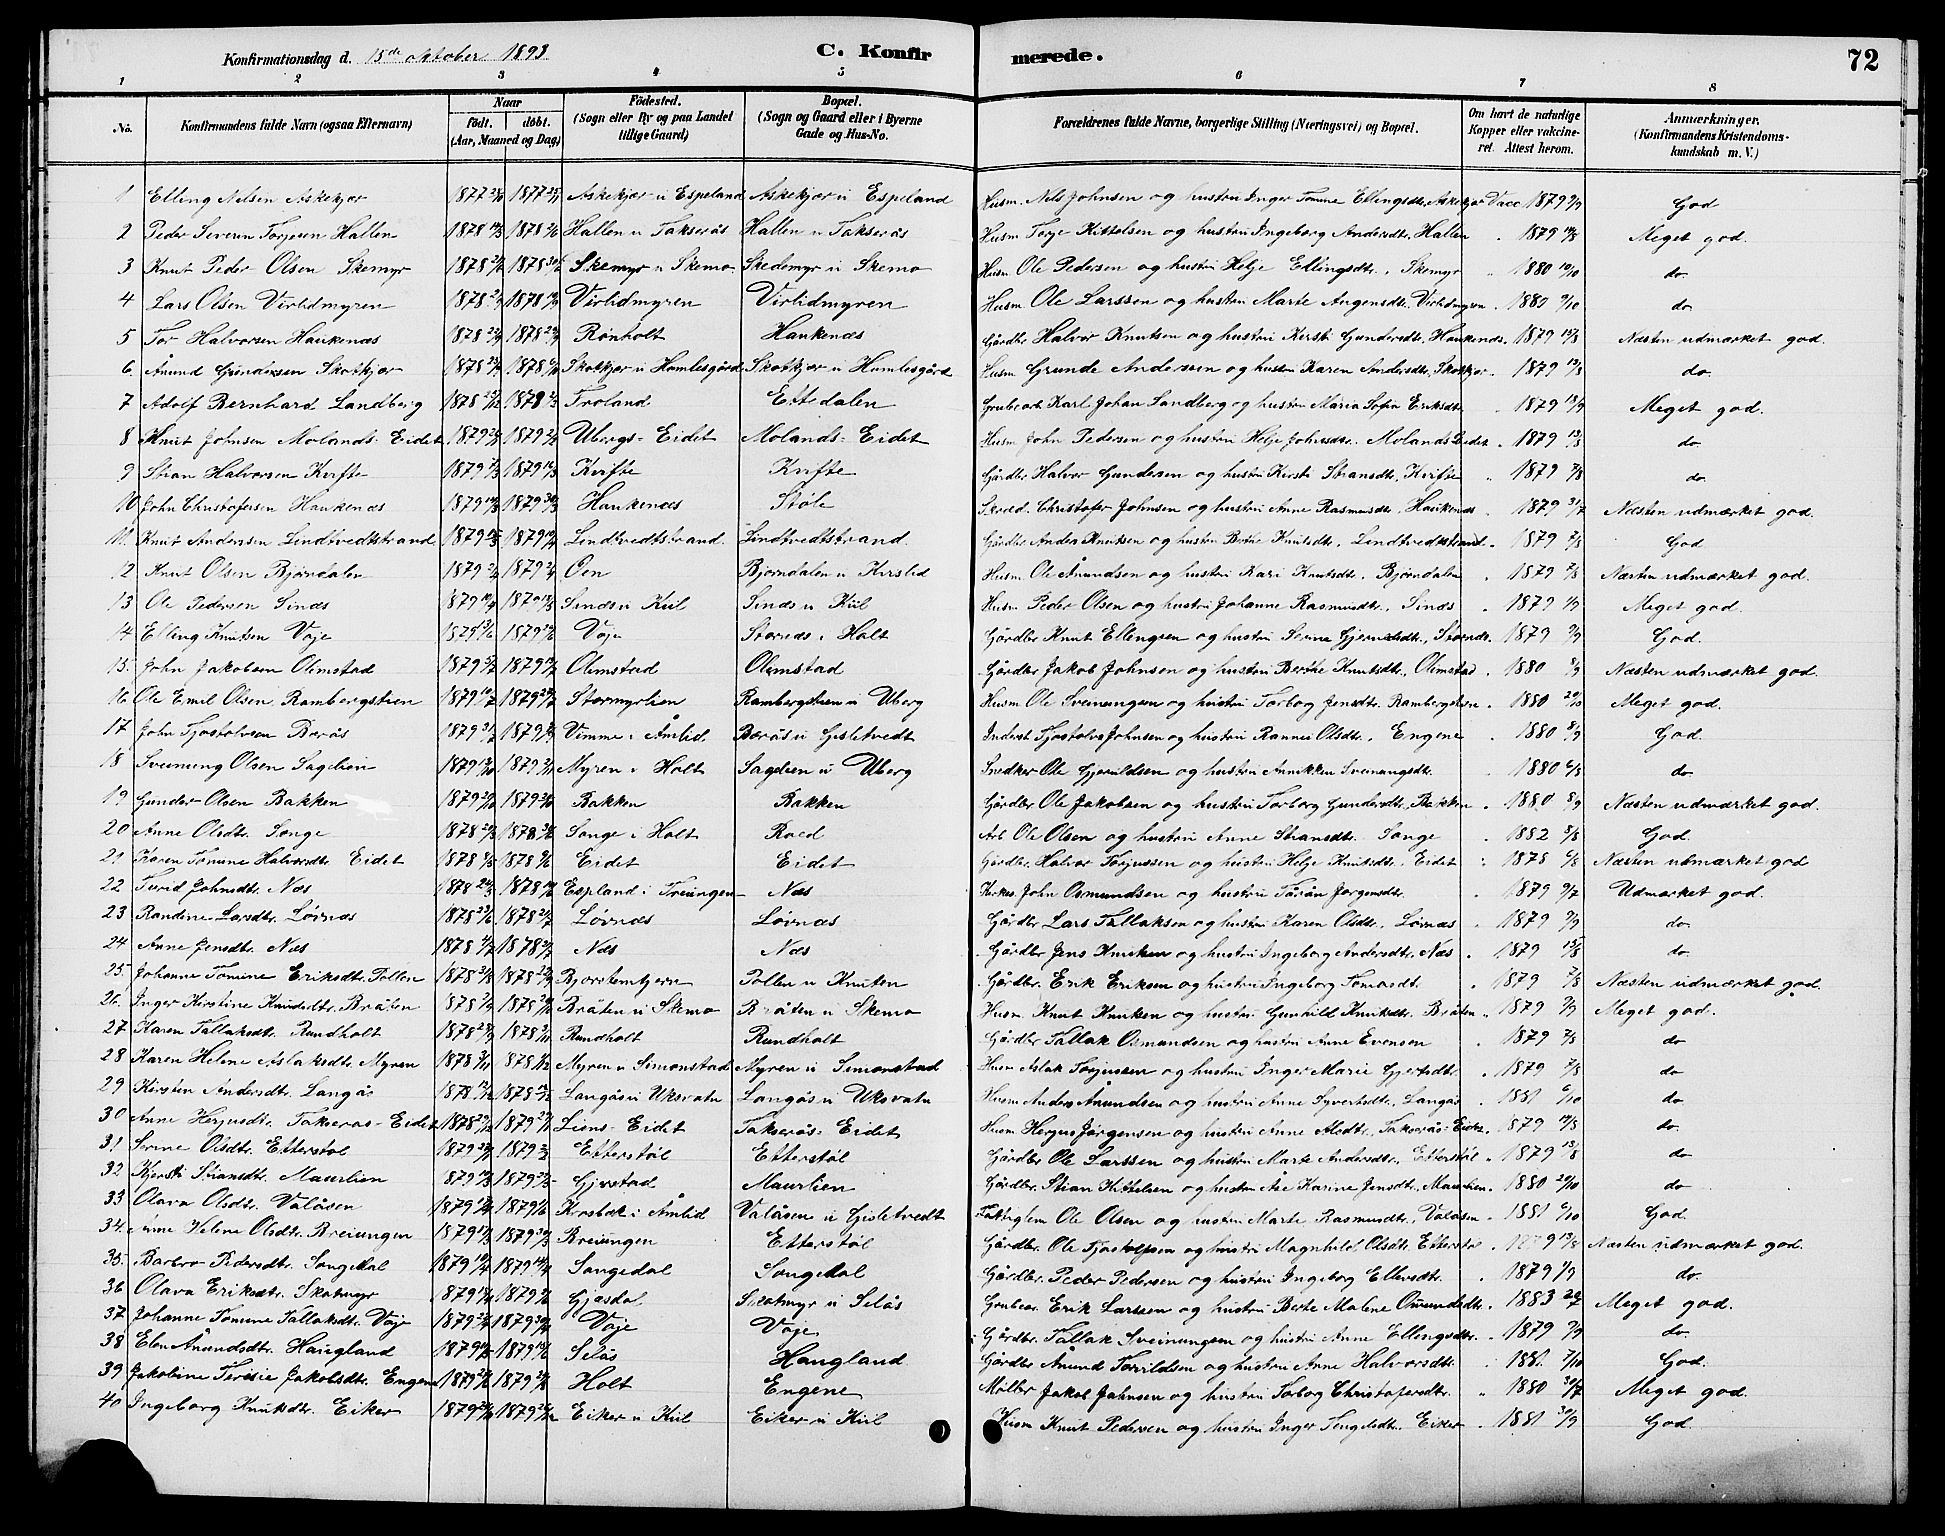 Konfirmationsdag d. 15de oktober 1893. C. Konfirmerede. 72
1 2 3 4 5 6 7 8
No. Konfirmandens fulde Navn (ogsaa Efternavn) Naar født. døbt. (Aar, Maaned og Dag) Fødested. (Sogn eller By og paa Landet tillige Gaard) Bopæl. (Sogn og Gaard eller i Byerne Gade og Hus-No. Forældrenes fulde Navne, borgerlige Stilling (Næringsvei) og Bopæl. Om havt de naturlige Kopper eller vakcineret. Attest herom. Anmærkninger. (Konfirmandens Kristendomskundskab m. V.)
1 Elling Nelsen Askekjær 1877 1877 Askekjær u Espeland Askekjær u Espeland Husm. Nels Johnsen og hustru Inger Tomine Ellingsdtr. Askekjær Vacc 1879 9/9 God
2 Peder Severin Torjesen Hallen 1878 1878 Hallen u Takserås Hallen u Takserås Husm Torje Kittelsen og hustru Ingeborg Andersdtr. Hallen " 1879 Meget god.
3 Knut Peder Olsen Skemyr 1878 1878 Skemyr u Skemo Skedemyr u Skemo Husm Ole Pedersen og hustru Helje Ellingsdtr., Skemyr " 1880 10/10 do
4 Lars Olsen Virlidmyren 1878 1878 Virlidmyren Virlidmyren Husm Ole Larssen og hustru Marte Angensdtr. Virlidmyren " 1880 9/10 do
5 Tor Halvorsen Haukenæs 1878 1878 Rønholt Haukenæs Gårdbr Halvor Knutsen og hustru Kirsti Gundersdtr, Haukenæs. 1879 Næsten udmærket god.
6. Ånund Grundesen Skotkjær 1878 1878 Skotkjær u Homlesgård Skotkjær u Humlesgård Husm Grunde Anderssen og hustru Karen Andersdtr. Skotkjær. 1879 do.
7 Adolf Bernhard Landberg 1878 1878 Troland Ettedalen Grubearb Karl Johan Sandberg og hustru Maria Sofia Eriksdtr " 1879 Meget god.
8 Knut Johnsen Molands-Eidet 1879 1879 Ubergs-Eidet Molands-Eidet Husm John Pedersen og hustru Helje Johnsdtr. Molands Eidet. 1879 do
9 Stian Halvorsen Kvifte 1879 1879 Kvifte Kvifte Gårdbr Halvor Gundersen og hustru Kirsti Stiansdtr, Kvifte " 1879 7/8 do
10 John Christofersen Haukenæs 1879 1879 Haukenæs Støle Skræd. Christofer Johnsen og hustru Anne Rasmusdtr, Haukenæs. 1879 31/7 Næsten udmærket god.
11. Knut Andersen Lindtvedtstrand. 1879 1879 Lindtvedtstrand. Lindtvedtstrand. Gårdbr Anders Knutsen og hustru Berthe Knutsdtr, Lindtvedtstrand. 1879 7/8 God
12 Knut Olsen Bjørndalen 1879 1879 Oen Bjørndalen u Kirslid Husm. Ole Ånundsen og hustru Kari Knutsdtr, Bjørndalen " 1879 7/8 Næsten udmærket god.
13 Ole Pedersen Sinæs 1879 1879 Sinæs u Kiil Sinæs u Kiil Husm Peder Olsen og hustru Johanne Rasmusdtr., Sinæs " 1879 Meget god.
14 Elling Knutsen Vaje 1879 1879 Vaje Storenæs i Holt Gårdbr Knut Ellingsen og hustru Serine Gjerulsdtr., Stornæs. 1879 9/9 God.
15. John Jakobsen Olimstad 1879 1879 Olimstad Olimstad Gårdbr Jakob Johnsen og hustru Berthe Knutsdtr, Olimstad " 1880 Næsten udmærket god.
16 Ole Emil Olsen Rambergstien 1879 1879 Stormyrlien Rambergstien u Uberg Husm Ole Sveinungsen og hustru Torbog Jensdtr. Rambergstien " 1880 20/10 Meget god.
17 John Tjostolvsen Berås 1879 1879 Vimme i Åmlid. Berås u Gisletvedt Inderst. Tjostolv Johnsen og hustru Rannei Olsdtr., Engene " 1880 8/9 God.
18 Sveinung Olsen Sagelien 1879 1879 Myren i Holt Sagelien u Uberg Snedker Ole Gjeruldsen og hustru Annikken Sveinungsdtr. 1880 6/8 do
19 Gunder Olsen Bakken 1879 1879 Bakken Bakken Gårdbr Ole Jakobsen og hustru Torborg Gundersdtr, Bakken " 1880 8/9 Næsten udmærket god.
20 Anne Olsdtr. Songe 1878 1878 Songe i Holt Roed Arb Ole Olsen og hustru Anne Stiansdtr. Songe " 1882 8/8 God.
21 Karen Tomine Halvorsdtr. Eidet 1878 1878 Eidet Eidet Gårdbr. Halvor Torjussen og hustru Helje Knutsdtr, Eidet " 1878 6/8 Næsten udmærket god
22 Turid Johnsdtr. Næs 1878 1878 Espland i Treungen Næs Kirkes. John Osmundsen og hustru Taran Jørgensdtr. " 1879 9/7 Udmærket god.
23 Randine Larsdtr. Løvnæs 1878 1878 Løvnæs Løvnæs Gårdbr Lars Tallaksen og hustru Karen Olsdtr., Løvnæs " 1879 9/9 do
24 Anne Jensdtr. Næs 1878 1878 Næs Næs Gårdbr Jens Knutsen og hustru Ingeborg Andersdtr. Næs " 1879 15/8 do
25. Johanne Tomine Eriksdtr. Pollen 1878 1878 Bjorstemtjern Pollen u Knuten Gårdbr. Erik Eriksen og hustru Ingeborg Tomasdtr. " 1879 7/8 Næsten udmærket god.
26. Inger Kirstine Knudsdtr. Bråten 1878 1878 Bråten u Skemo Bråten u Skemo Husm Knut Knutsen og hustru Gunhild Knutsdtr, Bråten " 1879 9/9 Meget god.
27 Karen Tallaksdtr. Rundholt 1878 1878 Rundholt Rundholt Gårdbr Tallak Osmundsen og hustru Anne Evensen " 1879 7/8 do
28 Karen Helene Aslaksdtr. Myren 1878 1878 Myren u Simonstad Myren u Simonstad Husm Aslak Torjussen og hustru Inger Marie Gjertsdtr. " 1879 7/8 do
29 Kirsten Andersdtr. Langås 1878 1878 Langås u Uksvatn Langås u Uksvatn Husm Anders Ånundsen og hustru Anne Syvertsdtr, Langås " 1881 9/10 do
30 Anne Herjusdtr. Takserås-Eidet 1878 1879 Liens-Eidet Takserås-Eidet Husm Herjus Jørgensen og hustru Anne Alsdtr., Takserås-Eidet. 1879 do.
31 Serine Olsdtr. Etterstøl 1879 1879 Etterstøl Etterstøl Gårdbr Ole Larssen og hustru Marte Andersdtr., Etterstøl " 1879 do
32 Kjersti Stiansdtr. Maurlien 1879 1879 Gjevstad Maurlien Gårdbr. Stian Kittelsen og hustru Åse Karine Jensdtr, Maurlien. 1880 20/10 do
33 Olava Olsdtr. Valåsen 1879 1879 Krosbek i Åmlid Valåsen u Gisletvedt Fattiglem Ole Olsen og hustru Marte Rasmusdtr, Valåsen " 1881 6/10 God.
34. Anne Helene Olsdtr. Breiungen 1879 1879 Breiungen Etterstøl Gårdbr. Ole Tjostolfsen og hustru Magnhild Olsdtr. Etterstøl " 1879 Næsten udmærket god.
35. Barbro Pedersdtr. Songedal 1879 1879 Songedal Songedal Gårdbr. Peder Pedersen og hustru Ingeborg Ellevsdtr. " 1879 do.
36 Olava Eriksdtr. Skotmyr 1879 1879 Gjøsdal Skotmyr u Selås Grubear. Erik Larssen og hustru Berte Malene Osmundsdtr. " 1883 Meget god.
37 Johanne Tomine Tallaksdtr. Vaje 1879 1879 Vaje Vaje Gårdbr. Tallak Sveinungsen og hustru Anne Ellingsdtr. " 1879 9/9 do.
38 Elen Ånundsdtr. Haugland 1879 1879 Selås Haugland Gårdbr Ånund Torvildsen og hustru Anne Halvorsdtr " 1881 7/10 God.
39 Jakobine Terisie Jakobsdtr. Engene 1879 1879 Holt Engene Møller Jakob Johnsen og hustru Torborg Christofersdtr. " 1880 30/7 Meget god.
40 Ingeborg Knutsdtr. Eiker 1879 1879 Eiker u Kiil Eiker u Kiil Husm Knut Pedersen og hustru Inger Tengelsdtr. Eiker " 1881 30/9 God